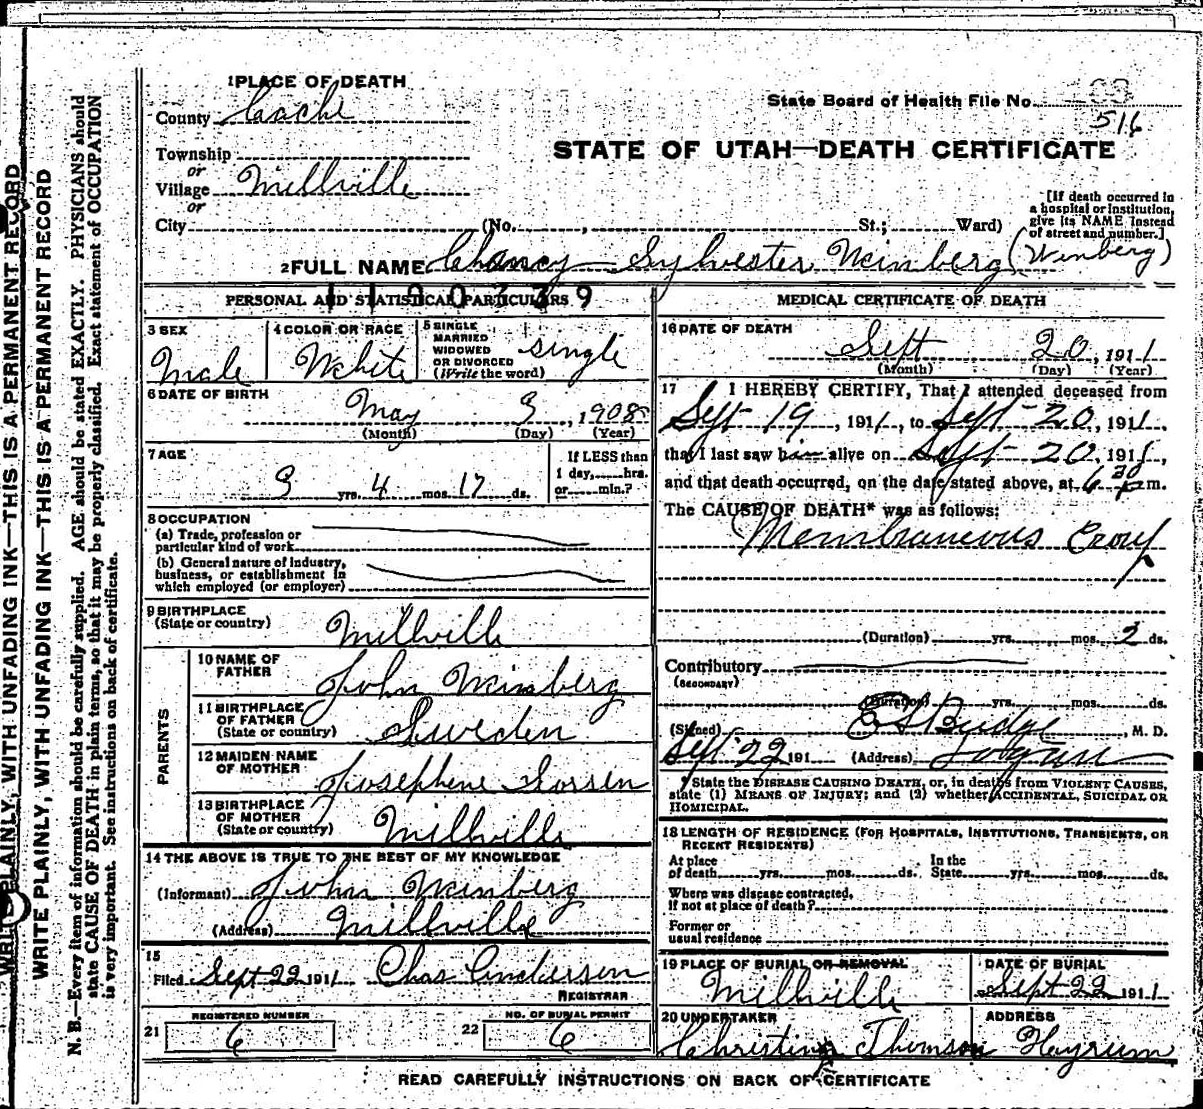 WRITE PLAINLY, WITH UNFADING INK—THIS IS A PERMANENT RECORD
WRITE PLAINLY, WITH UNFADING INK—THIS IS A PERMANENT RECORD
N. B.—Every item of information should be carefully supplied. AGE should be stated EXACTLY. PHYSICIANS should
state CAUSE OF DEATH in plain terms, so that it may be properly classified. Exact statement of OCCUPATION
is very important. See instructions on back of certificate.
1 PLACE OF DEATH
County Cache
State Board of Health File No.
516
Township
or
Village Millville
or
STATE OF UTAH—DEATH CERTIFICATE
City (No. , St.; Ward)
[If death occurred in
a hospital or institution,
give its NAME instead
of street and number.]
2 FULL NAME Chancy Sylvester Weinberg (Winberg)
PERSONAL AND STATISTICAL PARTICULARS
1100339
3 SEX
Male
4 COLOR OR RACE
White
5 SINGLE
MARRIED
WIDOWED
OR DIVORCED
(Write the word)
single
6 DATE OF BIRTH
May 3, 1908
(Month) (Day) (Year)
7 AGE
3 yrs. 4 mos. 17 ds.
If LESS than
1 day, hrs.
or min.?
8 OCCUPATION
(a) Trade, profession or
particular kind of work
(b) General nature of industry,
business, or establishment in
which employed (or employer)
9 BIRTHPLACE
(State or country)
Millville
PARENTS
10 NAME OF
FATHER
John Weinberg
11 BIRTHPLACE
OF FATHER
(State or country)
Sweden
12 MAIDEN NAME
OF MOTHER
Josephene
13 BIRTHPLACE
OF MOTHER
(State or country)
Millville
14 THE ABOVE IS TRUE TO THE BEST OF MY KNOWLEDGE
(Informant) John Weinberg
(Address) Millville
15
Filed Sept 22 1911 Chas Anderson
REGISTRAR
21 REGISTERED NUMBER
6
22 NO. OF BURIAL PERMIT
6
MEDICAL CERTIFICATE OF DEATH
16 DATE OF DEATH
Sept 20, 1911
(Month) (Day) (Year)
17 I HEREBY CERTIFY, That I attended deceased from
Sept 19, 1911, to Sept 20, 1911,
that I last saw him alive on Sept 20, 1911,
and that death occurred, on the date stated above, at 6 30 P m.
The CAUSE OF DEATH* was as follows:
Membraneous Croup
(Duration) yrs. mos. 2 ds.
Contributory
(SECONDARY)
(Duration) yrs. mos. ds.
(Signed) Budge, M. D.
Sept 22 191 (Address) Logan
* State the DISEASE CAUSING DEATH, or, in deaths from VIOLENT CAUSES,
state (1) MEANS OF INJURY; and (2) whether ACCIDENTAL, SUICIDAL OR
HOMICIDAL.
18 LENGTH OF RESIDENCE (FOR HOSPITALS, INSTITUTIONS, TRANSIENTS, OR
RECENT RESIDENTS)
At place
of death yrs. mos. ds.
In the
State yrs. mos. ds.
Where was disease contracted,
if not at place of death?
Former or
usual residence
19 PLACE OF BURIAL OR REMOVAL
Millville
DATE OF BURIAL
Sept 22 1911
20 UNDERTAKER
Christina Thomson
ADDRESS
Hyrum
READ CAREFULLY INSTRUCTIONS ON BACK OF CERTIFICATE